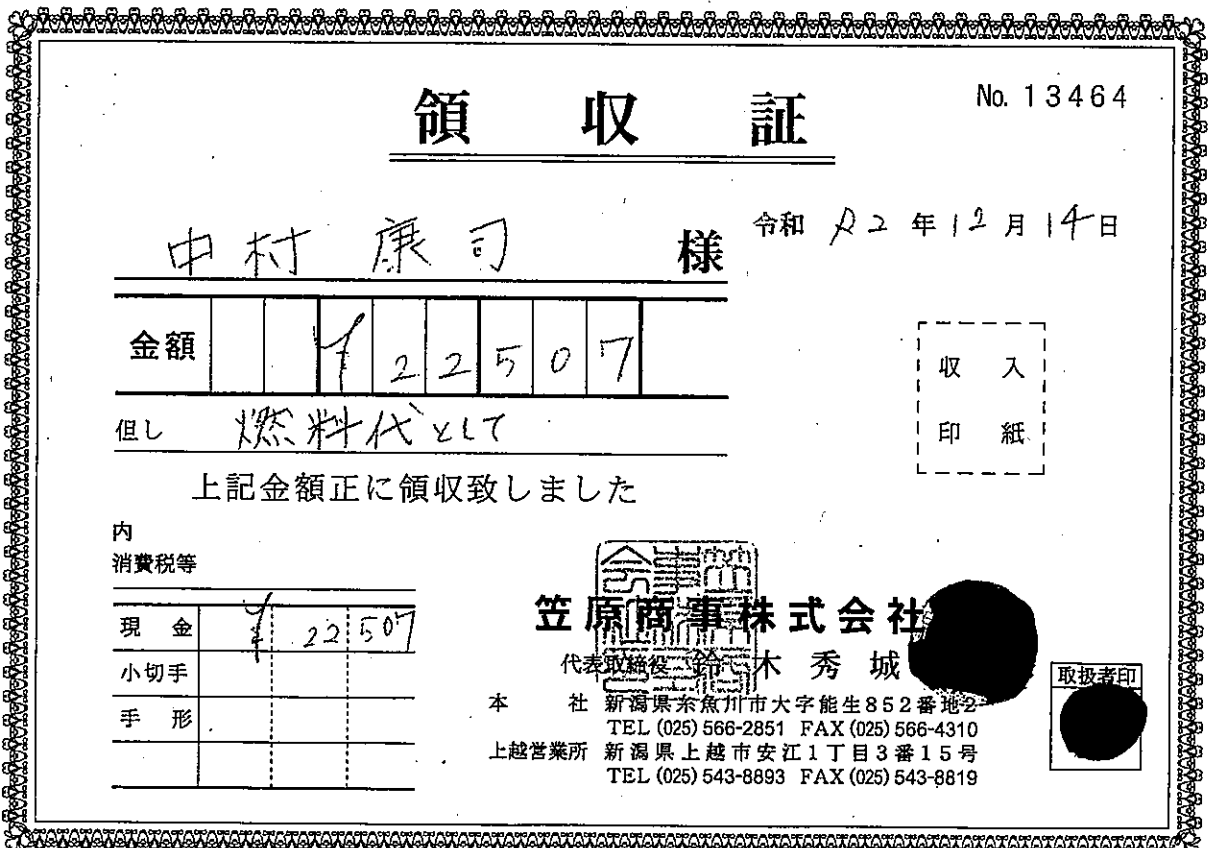 領収証
No. 13464
令和 R2 年 12 月 14 日
中村 康司 様
金額 ¥22507
但し 燃料代として
上記金額正に領収致しました
収入
印紙
内
消費税等
現金 ¥22507
小切手
手形
笠原商事株式会社
代表取締役 鈴木秀城
本社 新潟県糸魚川市大字能生852番地2
TEL (025) 566-2851 FAX (025) 566-4310
上越営業所 新潟県上越市安江1丁目3番15号
TEL (025) 543-8893 FAX (025) 543-8819
取扱者印